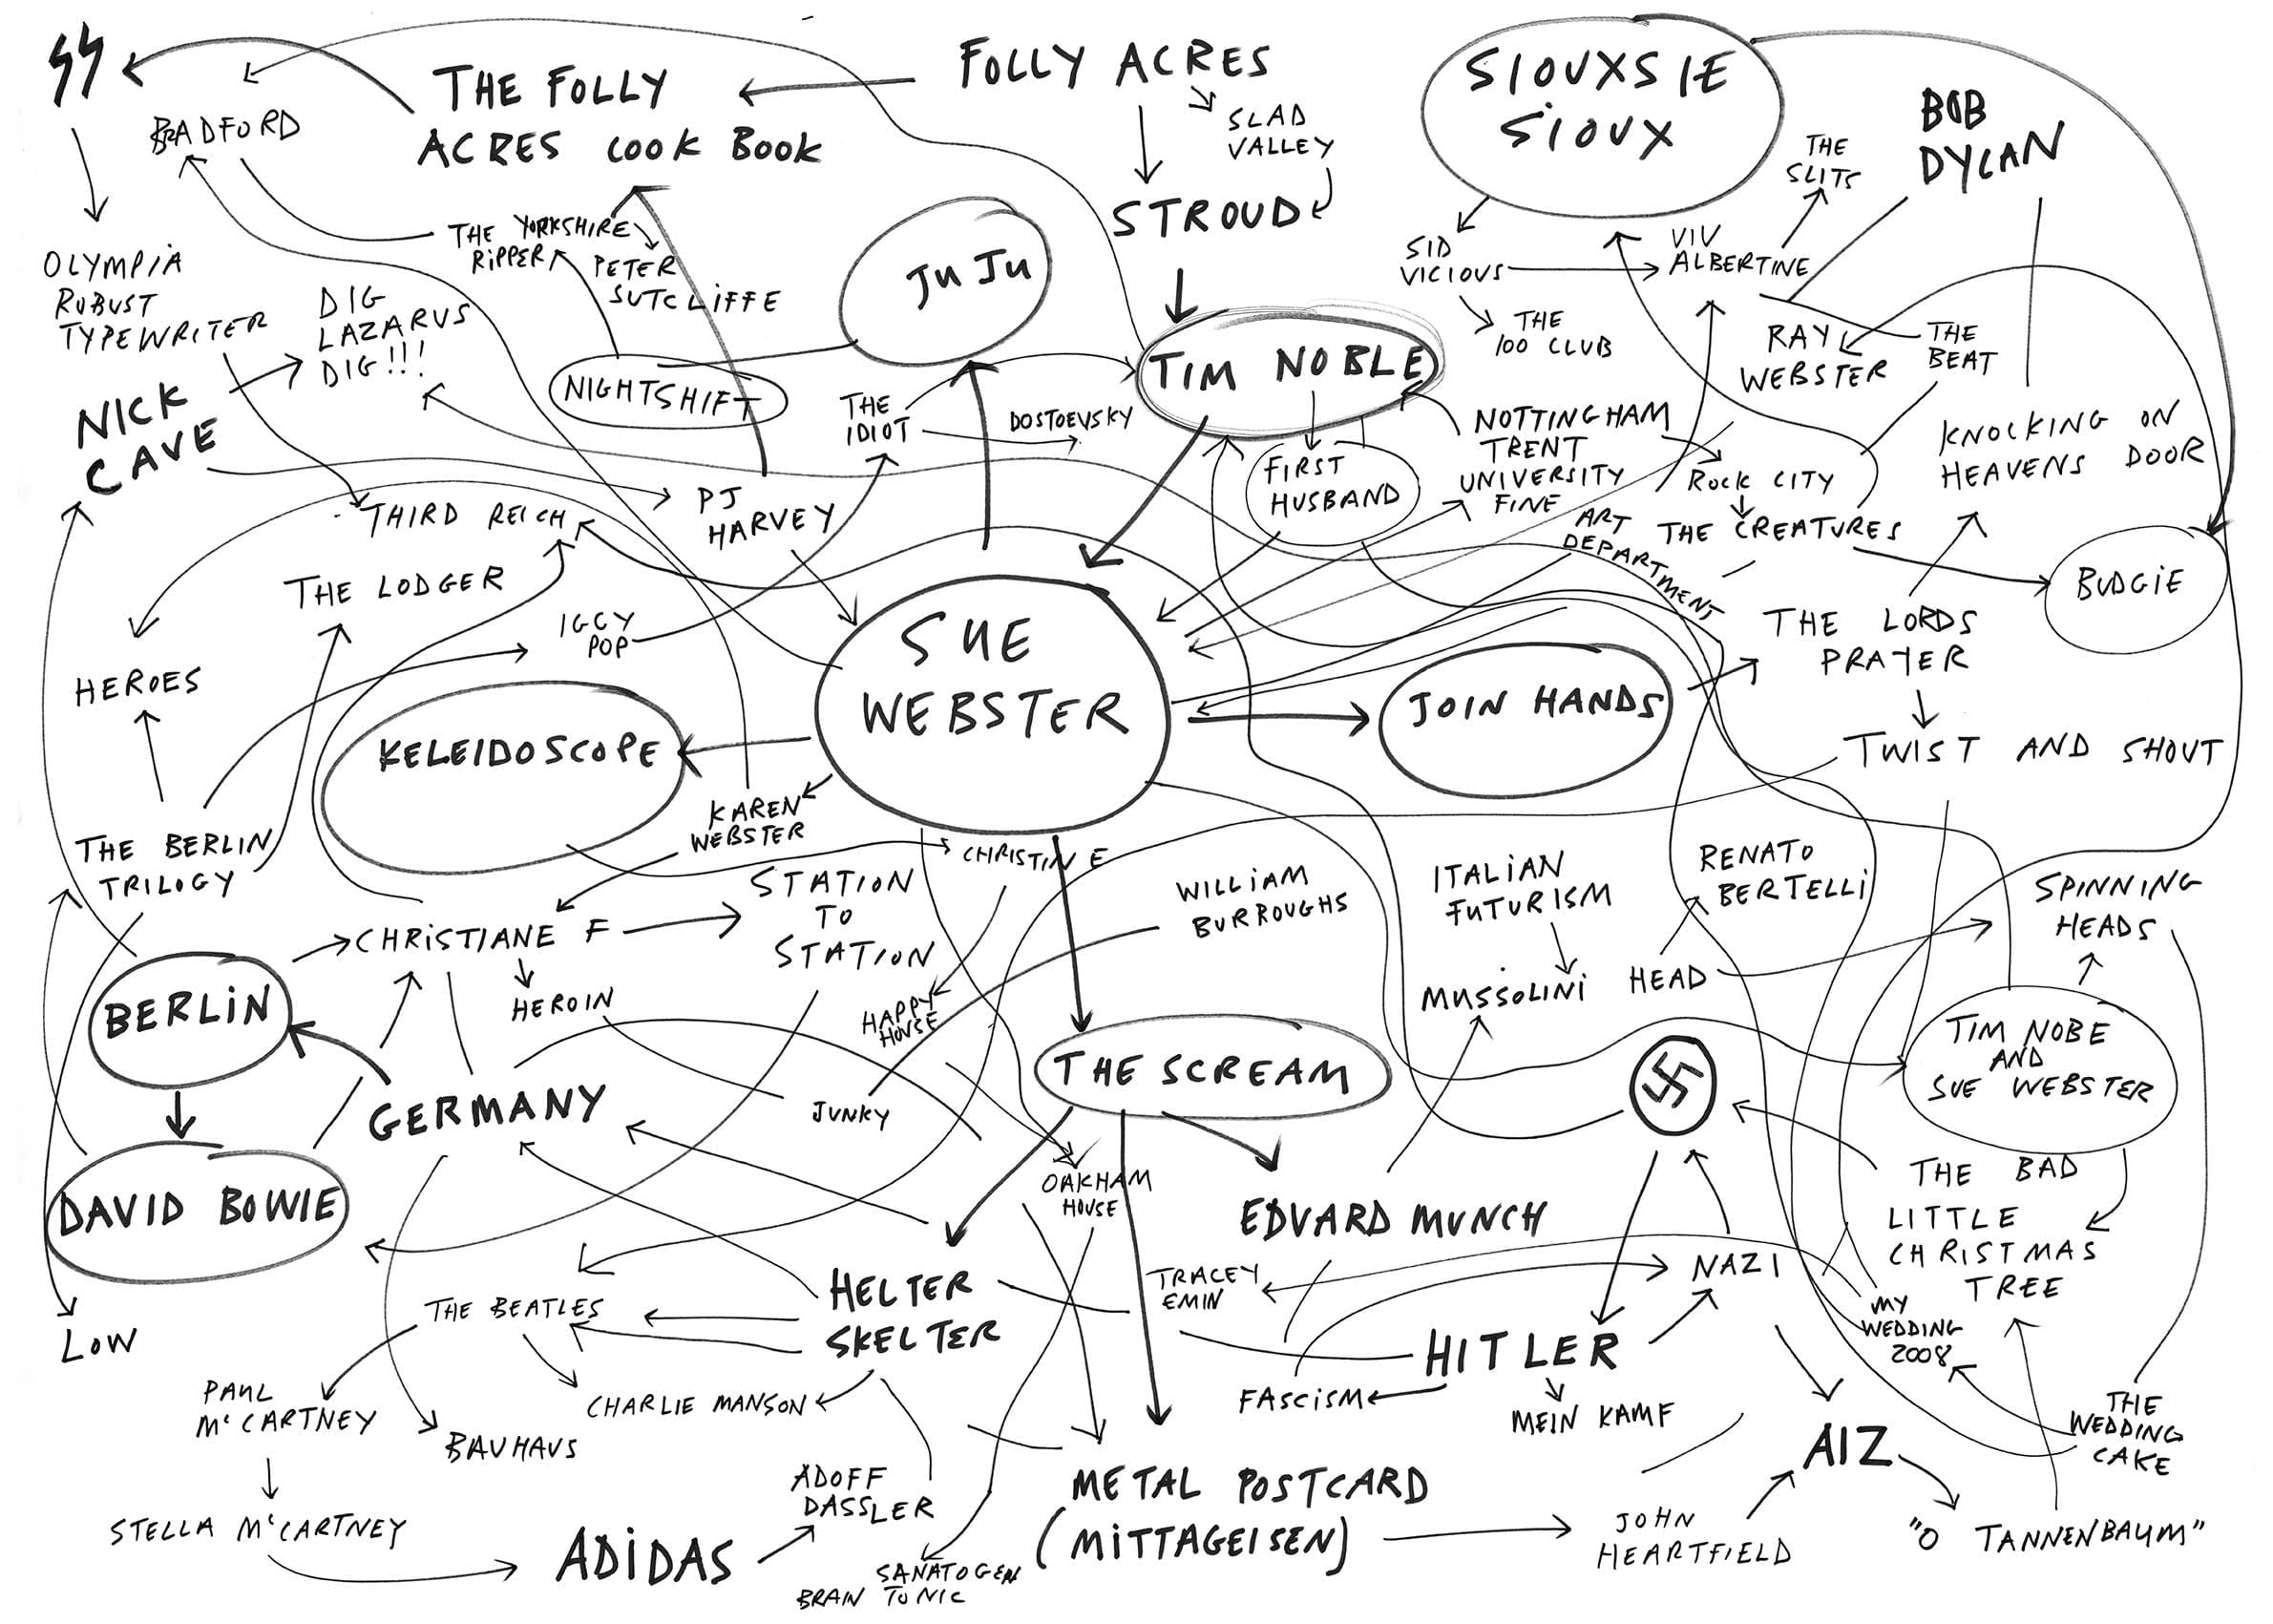 FOLLY ACRES
SIOUXSIE
SIOUX
THE FOLLY
ACRES COOK BOOK
SLAD
VALLEY
BOB
DYLAN
BRADFORD
THE
SLITS
STROUD
THE YORKSHIRE
RIPPER
PETER
SUTCLIFFE
JUJU
SID
VICIOUS
VIV
ALBERTINE
OLYMPIA
ROBUST
TYPEWRITER
DIG
LAZARUS
DIG!!!
THE
100 CLUB
RAY
WEBSTER
THE
BEAT
TIM NOBLE
NICK
CAVE
NIGHTSHIFT
THE
IDIOT
DOSTOEVSKY
FIRST
HUSBAND
NOTTINGHAM
TRENT
UNIVERSITY
FINE
ART
DEPARTMENT
ROCK CITY
KNOCKING ON
HEAVENS DOOR
THIRD REICH
PJ
HARVEY
THE CREATURES
BUDGIE
THE LODGER
IGGY
POP
SUE
WEBSTER
THE LORDS
PRAYER
HEROES
KELEIDOSCOPE
JOIN HANDS
TWIST AND SHOUT
KAREN
WEBSTER
CHRISTINE
THE BERLIN
TRILOGY
STATION
TO
STATION
WILLIAM
BURROUGHS
ITALIAN
FUTURISM
RENATO
BERTELLI
SPINNING
HEADS
CHRISTIANE F
HEROIN
HAPPY
HOUSE
MUSSOLINI
HEAD
BERLIN
THE SCREAM
TIM NOBE
AND
SUE WEBSTER
GERMANY
JUNKY
DAVID BOWIE
OAKHAM
HOUSE
EDVARD MUNCH
THE BAD
LITTLE
CHRISTMAS
TREE
LOW
THE BEATLES
HELTER
SKELTER
TRACEY
EMIN
NAZI
MY
WEDDING
2008
HITLER
PAUL
McCARTNEY
CHARLIE MANSON
FASCISM
MEIN KAMF
THE
WEDDING
CAKE
BAUHAUS
AIZ
ADOFF
DASSLER
METAL POSTCARD
(MITTAGEISEN)
STELLA McCARTNEY
ADIDAS
SANATOGEN
BRAIN TONIC
JOHN
HEARTFIELD
"O TANNENBAUM"